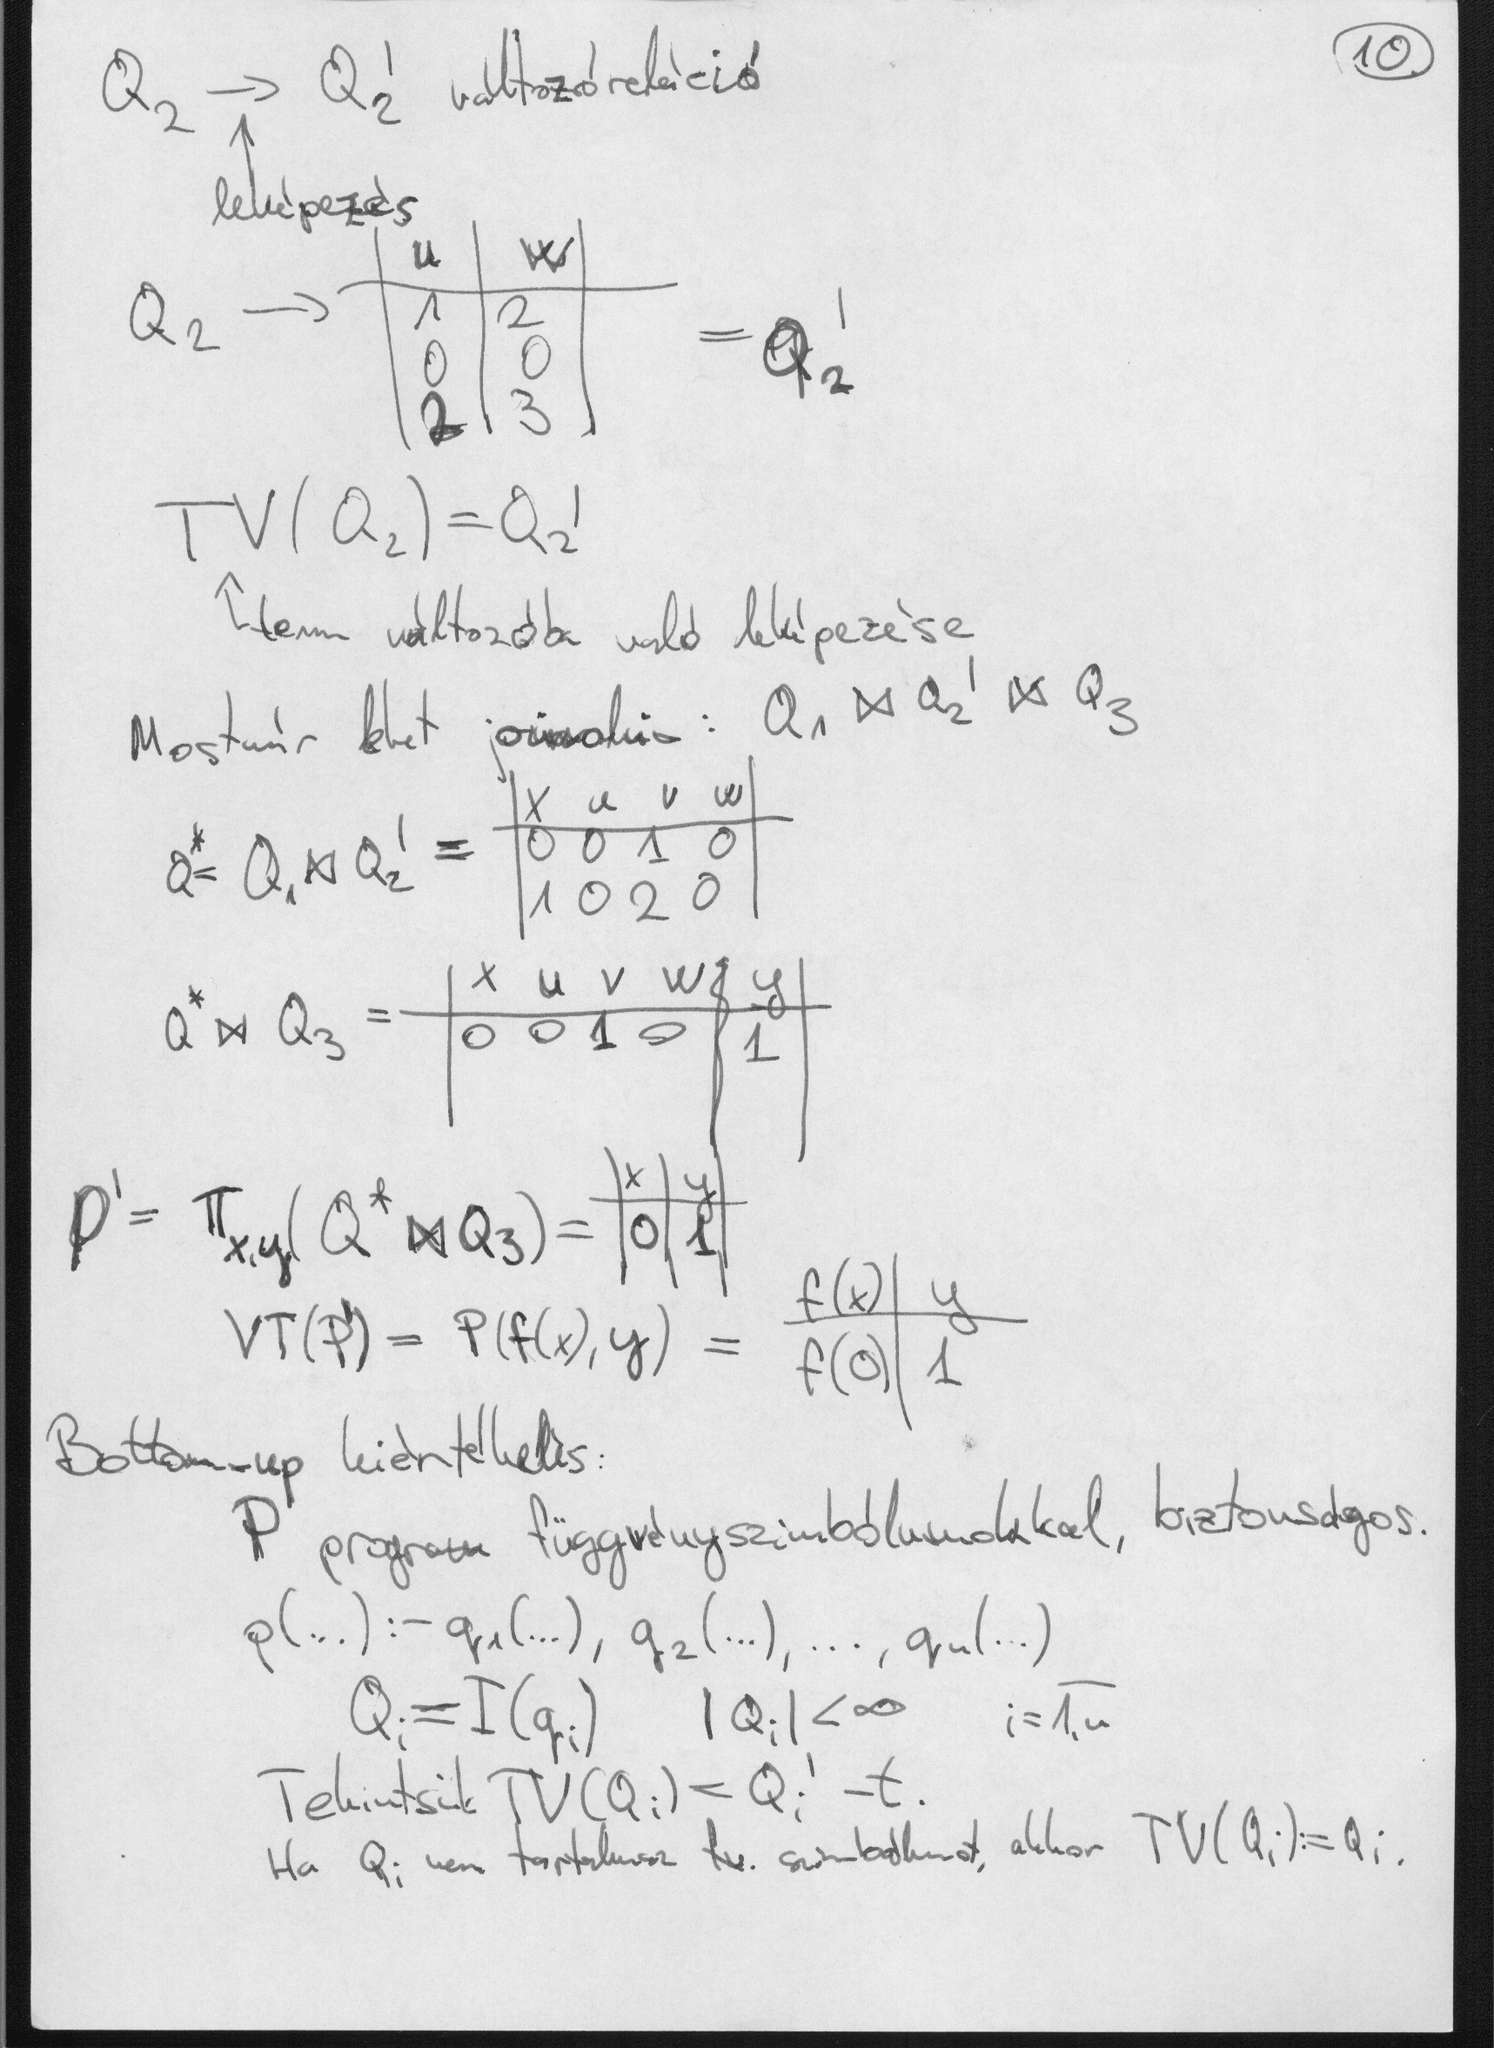 10.
Q₂ → Q₂' változóreláció
↑
leképezés
u | w
Q₂ → 1 | 2 = Q₂'
0 | 0
2 | 3
TV(Q₂) = Q₂'
↑ term változóba való leképezése
Mostmár lehet joinolni: Q₁ ⋈ Q₂' ⋈ Q₃
x u v w
Q* = Q₁ ⋈ Q₂' = 0 0 1 0
1 0 2 0
x u v w y
Q* ⋈ Q₃ = 0 0 1 0 1
x | y
P' = π x,y (Q* ⋈ Q₃) = 0 | 1
f(x) | y
VT(P') = P(f(x), y) = f(0) | 1
Bottom-up kiértékelés:
P program függvényszimbólumokkal, biztonságos.
p(...) :- q₁(...), q₂(...), ..., qn(...)
Qi = I(qi) |Qi| < ∞ i = 1,n
Tekintsük TV(Qi) = Qi' -t.
Ha Qi nem tartalmaz fv. szimbólumot, akkor TV(Qi) := Qi.